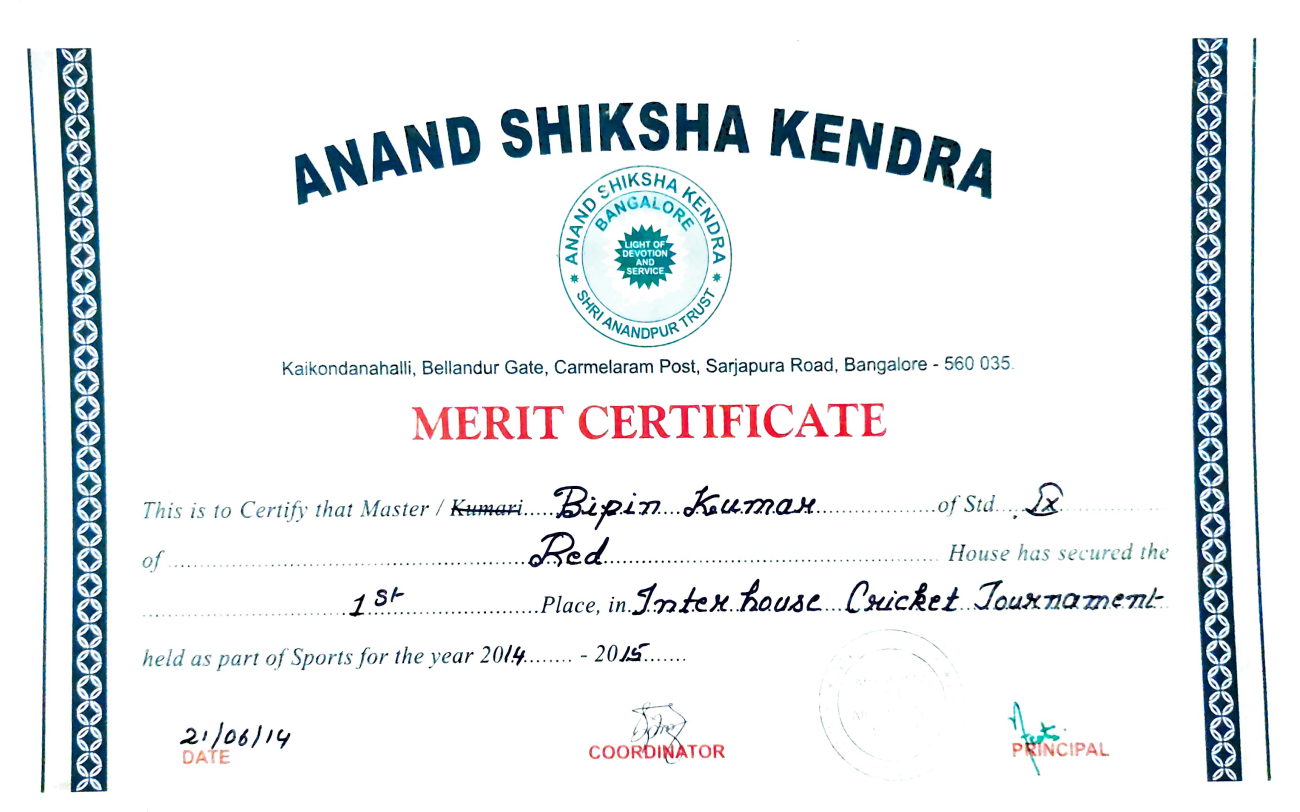 ANAND SHIKSHA KENDRA
ANAND SHIKSHA KENDRA
BANGALORE
LIGHT OF
DEVOTION
AND
SERVICE
SHRI ANANDPUR TRUST
Kaikondanahalli, Bellandur Gate, Carmelaram Post, Sarjapura Road, Bangalore - 560 035.
MERIT CERTIFICATE
This is to Certify that Master / Kumari.....Bipin Kumar.....of Std....IX
of.....Red.....House has secured the
.....1st.....Place, in.Inter house Cricket Tournament
held as part of Sports for the year 2014........ - 2015.......
21/06/14
DATE
COORDINATOR
PRINCIPAL